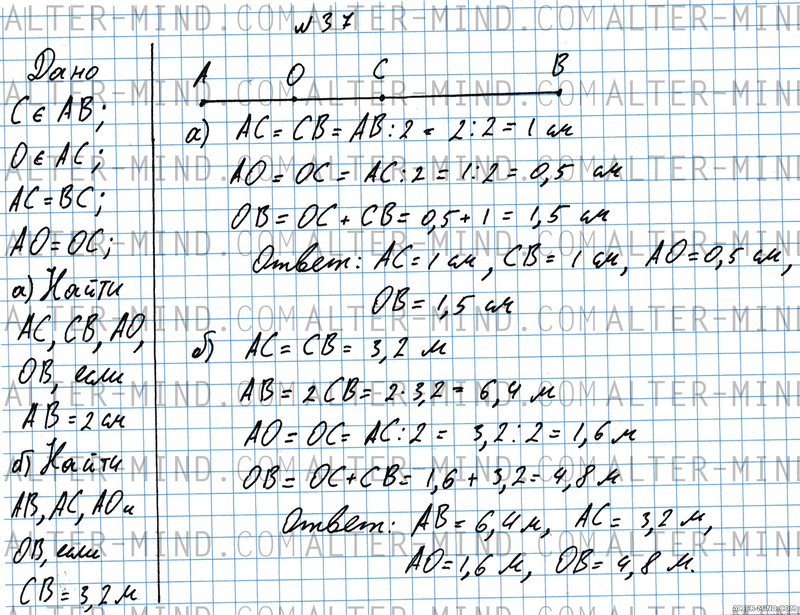 N 37
Дано
C ∈ AB;
O ∈ AC;
AC = BC;
AO = OC;
а) Найти
AC, CB, AO,
OB, если
AB = 2 см
б) Найти
AB, AC, AO и
OB, если
CB = 3,2 м
A O C B
а) AC = CB = AB : 2 = 2 : 2 = 1 см
AO = OC = AC : 2 = 1 : 2 = 0,5 см
OB = OC + CB = 0,5 + 1 = 1,5 см
Ответ: AC = 1 см, CB = 1 см, AO = 0,5 см,
OB = 1,5 см
б) AC = CB = 3,2 м
AB = 2CB = 2 · 3,2 = 6,4 м
AO = OC = AC : 2 = 3,2 : 2 = 1,6 м
OB = OC + CB = 1,6 + 3,2 = 4,8 м
Ответ: AB = 6,4 м, AC = 3,2 м,
AO = 1,6 м, OB = 4,8 м.
ALTER-MIND.COM